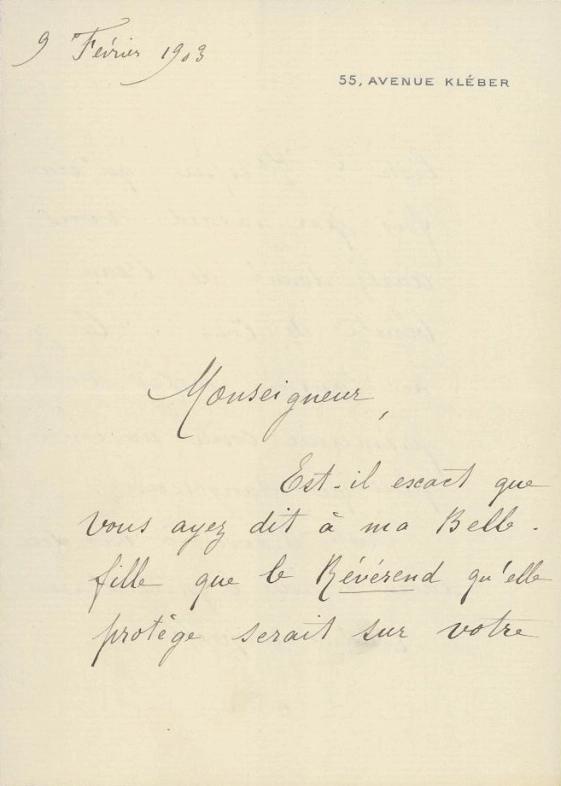 9 Février 1903
55, AVENUE KLÉBER
Monseigneur,
Est-il exact que
vous ayez dit à ma Belle-
fille que le Révérend qu'elle
protège serait sur votre